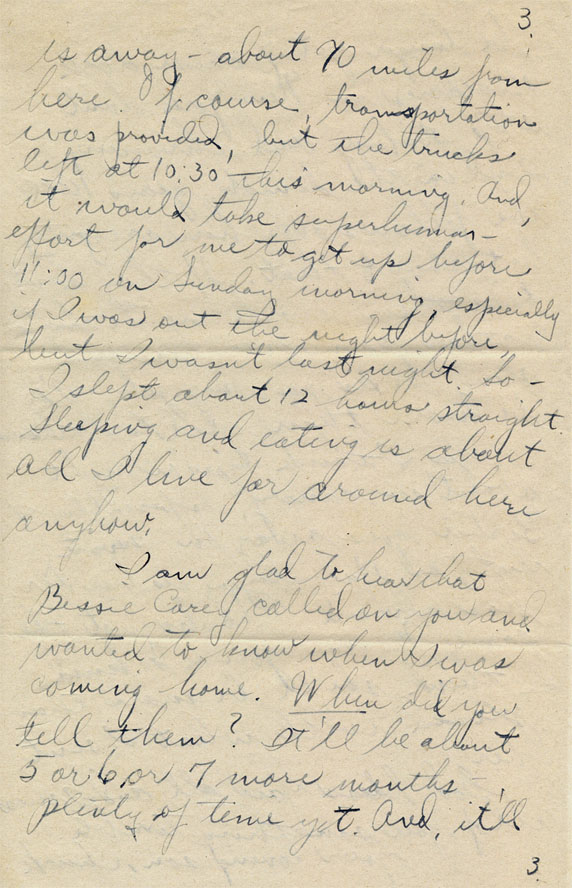 3.
is away - about 70 miles from
here. Of course, transportation
was provided, but the trucks
left at 10:30 this morning. And,
it would take superhuman -
effort for me to get up before
11:00 on Sunday morning, especially
if I was out the night before,
but I wasn't last night. So -
I slept about 12 hours straight.
Sleeping and eating is about
all I live for around here
anyhow.
I am glad to hear that
Bessie Carey called on you and
wanted to know when I was
coming home. When did you
tell them? It'll be about
5 or 6 or 7 more months -
plenty of time yet. And, it'll
3.